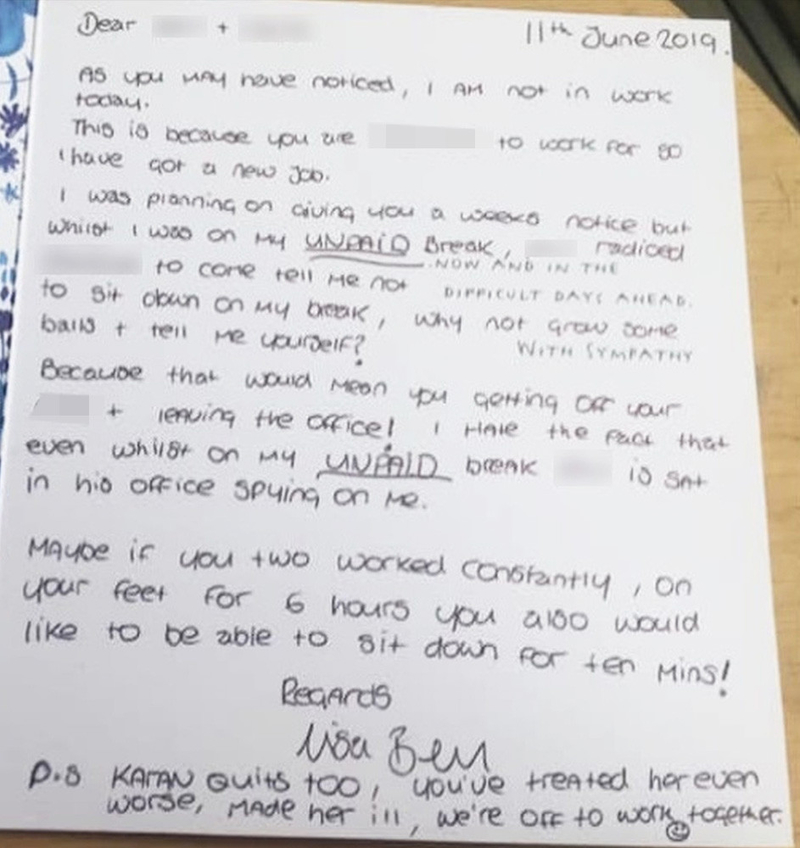 Dear + 11th June 2019.
As you may have noticed, I am not in work
today.
This is because you are to work for so
I have got a new job.
I was planning on giving you a weeks notice but
whilst I was on my UNPAID break, radioed
NOW AND IN THE
to come tell me not
DIFFICULT DAYS AHEAD.
to sit down on my break, why not grow some
balls + tell me yourself?
WITH SYMPATHY
Because that would mean you getting off your
+ leaving the office! I hate the fact that
even whilst on my UNPAID break is sat
in his office spying on me.
Maybe if you two worked constantly, on
your feet for 6 hours you also would
like to be able to sit down for ten mins!
Regards
Lisa
P.S KATAN quits too, you've treated her even
worse, made her ill, we're off to work together.